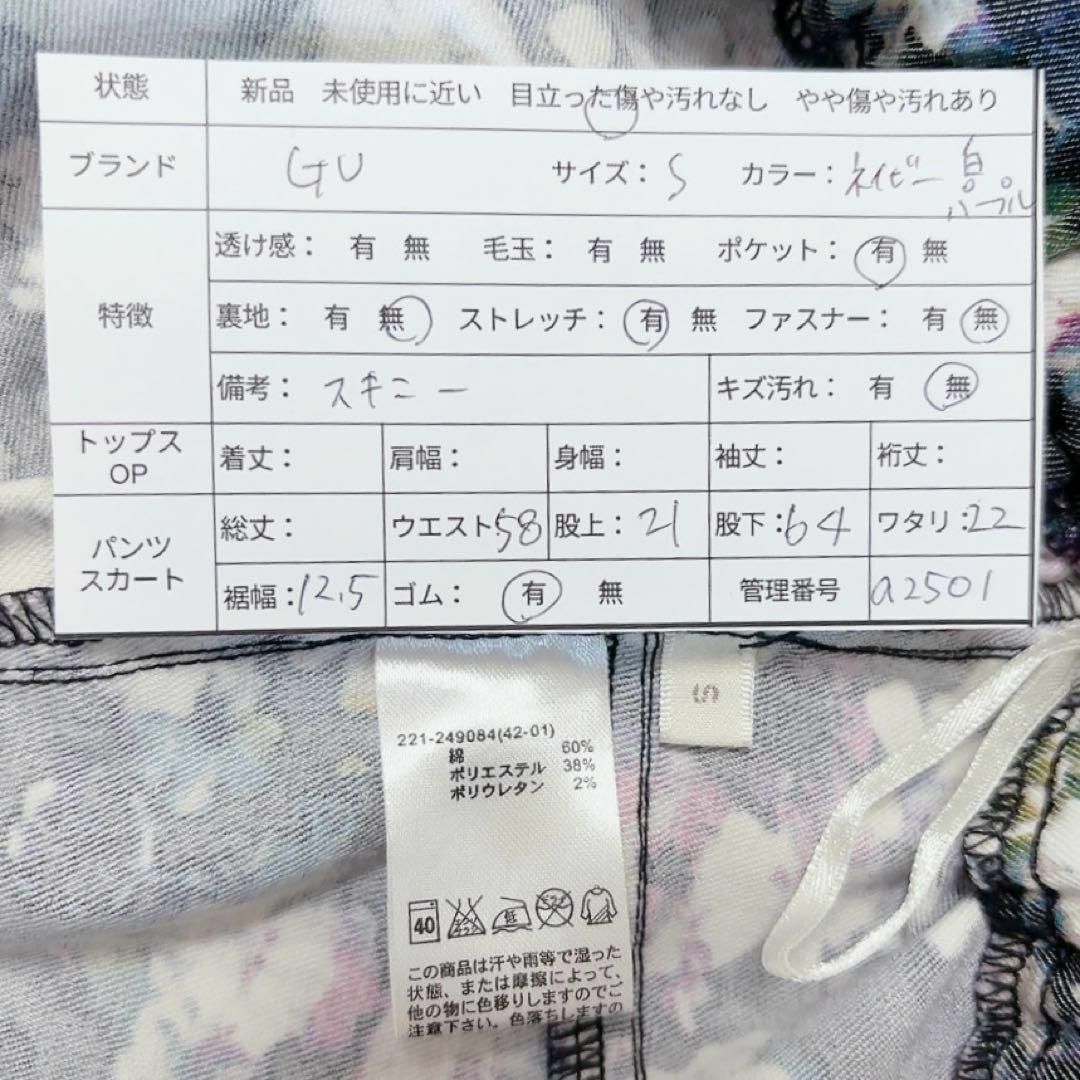 状態 新品 未使用に近い 目立った傷や汚れなし やや傷や汚れあり
ブランド GU サイズ:S カラー:ネイビー 白 パープル
特徴
透け感: 有 無 毛玉: 有 無 ポケット: 有 無
裏地: 有 無 ストレッチ: 有 無 ファスナー: 有 無
備考: スキニー キズ汚れ: 有 無
トップス OP 着丈: 肩幅: 身幅: 袖丈: 裄丈:
パンツ スカート
総丈: ウエスト58 股上:21 股下:64 ワタリ:22
裾幅:12.5 ゴム: 有 無 管理番号 a2501
S
221-249084(42-01)
綿 60%
ポリエステル 38%
ポリウレタン 2%
40
低
この商品は汗や雨等で湿った
状態、または摩擦によって、
他の物に色移りしますのでご
注意下さい。色落ちしますの